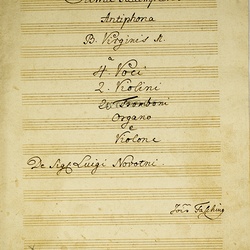 Antiphona
B. Virginis M.
a
4. Voci
2. Violini
2. Tromboni
Organo
e
Violone
De Sig: Luigi Novotni.
Fasching